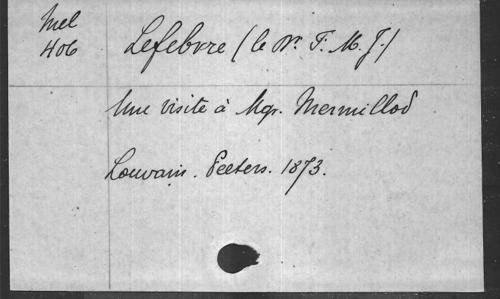 Mel
406
Lefebvre (le Dr. F. M. J.)
Une visite à Mgr. Mermillod
Louvain. Peeters. 1873.